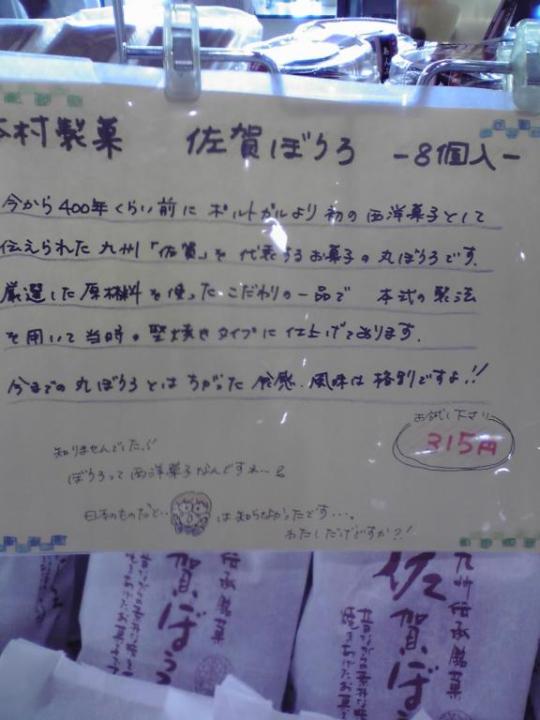 村製菓 佐賀ぼうろ -8個入-
今から400年くらい前に ポルトガルより 初の西洋菓子として
伝えられた 九州「佐賀」を 代表するお菓子の 丸ぼうろです。
厳選した原材料を使った こだわりの一品で 本式の製法
を用いて 当時の 堅焼きタイプに 仕上げてあります。
今までの 丸ぼうろとは ちがった 食感、風味は 格別ですよ!!
お試し下さい
315円
知りませんでした!!
ぼうろって西洋菓子なんですね…
日本のものだと… は知らなかったです…。
わたしだけですか?!
賀ぼう
佐賀ぼ
九州伝承銘菓
昔ながらの素朴な味を
焼きあげたお菓